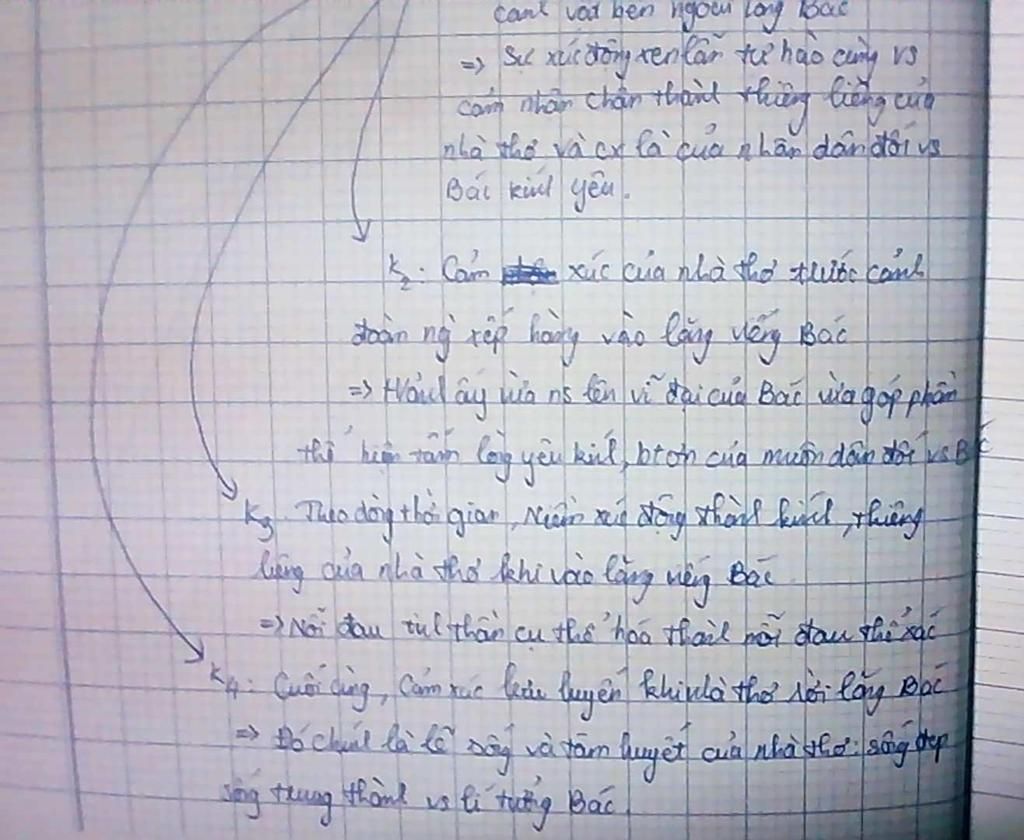 cảnh vật bên ngoài lăng Bác
=> Sự xúc động xen lẫn tự hào cùng vs
cảm nhận chân thành thiêng liêng của
nhà thơ và cx là của nhân dân đối vs
Bác kính yêu.
K2: Cảm xúc của nhà thơ trước cảnh
đoàn ng xếp hàng vào lăng viếng Bác
=> H/ảnh ấy vừa ns lên vĩ đại của Bác vừa góp phần
thể hiện tấm lòng yêu kính, btơn của muôn dân đối vs Bác
K3 Theo dòng thời gian, Niềm xúc động thành kính, thiêng
liêng của nhà thơ khi vào lăng viếng Bác
=> Nỗi đau tinh thần cụ thể hoá thành nỗi đau thể xác
K4: Cuối cùng, Cảm xúc lưu luyến khi nhà thơ rời lăng Bác
=> Đó chính là lẽ sống và tâm huyết của nhà thơ: sống đẹp
sống trung thành vs lí tưởng Bác